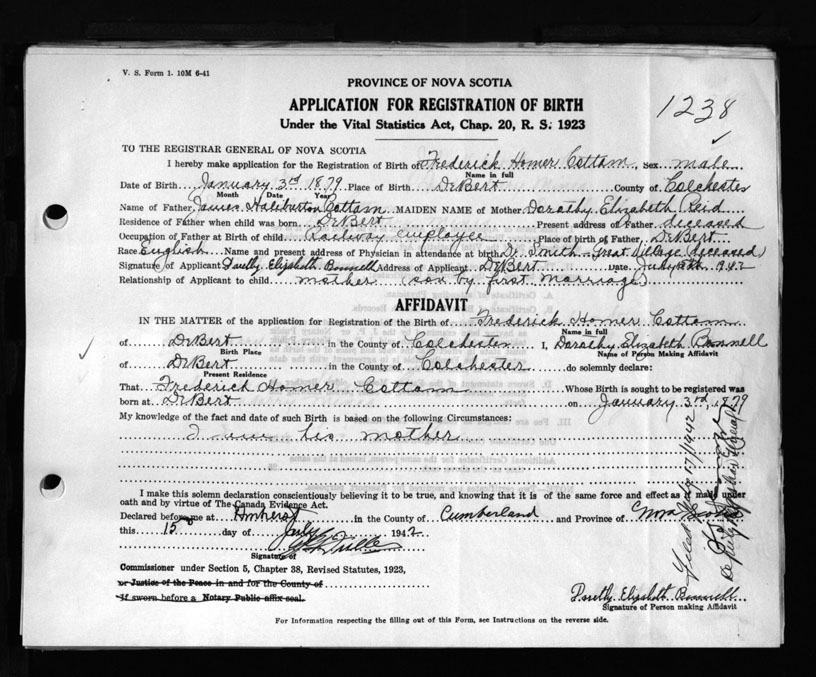 V. S. Form 1. 10M 6-41
1238
PROVINCE OF NOVA SCOTIA
APPLICATION FOR REGISTRATION OF BIRTH
Under the Vital Statistics Act, Chap. 20, R. S. 1923
TO THE REGISTRAR GENERAL OF NOVA SCOTIA
I hereby make application for the Registration of Birth of Frederick Homer Cottam, Sex male
Name in full
Date of Birth January 3rd 1879 Place of Birth DeBert County of Colchester
Month Date Year
Name of Father James Haliburton Cottam MAIDEN NAME of Mother Dorathy Elizabeth Reid
Residence of Father when child was born DeBert Present address of Father deceased
Occupation of Father at Birth of child Railway employee Place of birth of Father DeBert
Race English Name and present address of Physician in attendance at birth Dr Smith Great Village (deceased)
Signature of Applicant Dorothy Elizabeth Bonnell Address of Applicant DeBert Date July 1942
Relationship of Applicant to child mother (son by first marriage)
AFFIDAVIT
IN THE MATTER of the application for Registration of the Birth of Frederick Homer Cottam
Name in full
of DeBert in the County of Colchester I, Dorathy Elizabeth Bonnell
Birth Place Name of Person Making Affidavit
of DeBert in the County of Colchester do solemnly declare:
Present Residence
That Frederick Homer Cottam Whose Birth is sought to be registered was
born at DeBert on January 3rd, 1879
My knowledge of the fact and date of such Birth is based on the following Circumstances:
I am his mother
I make this solemn declaration conscientiously believing it to be true, and knowing that it is of the same force and effect as if made under
oath and by virtue of The Canada Evidence Act.
Declared before me at Amherst in the County of Cumberland and Province of Nova Scotia
this 15 day of July 1942
Signature of
Commissioner under Section 5, Chapter 38, Revised Statutes, 1923,
or Justice of the Peace in and for the County of
If sworn before a Notary Public affix seal.
Dorothy Elizabeth Bonnell
Signature of Person making Affidavit
For Information respecting the filling out of this Form, see Instructions on the reverse side.
Filed July 17/1942
Deputy Registrar General